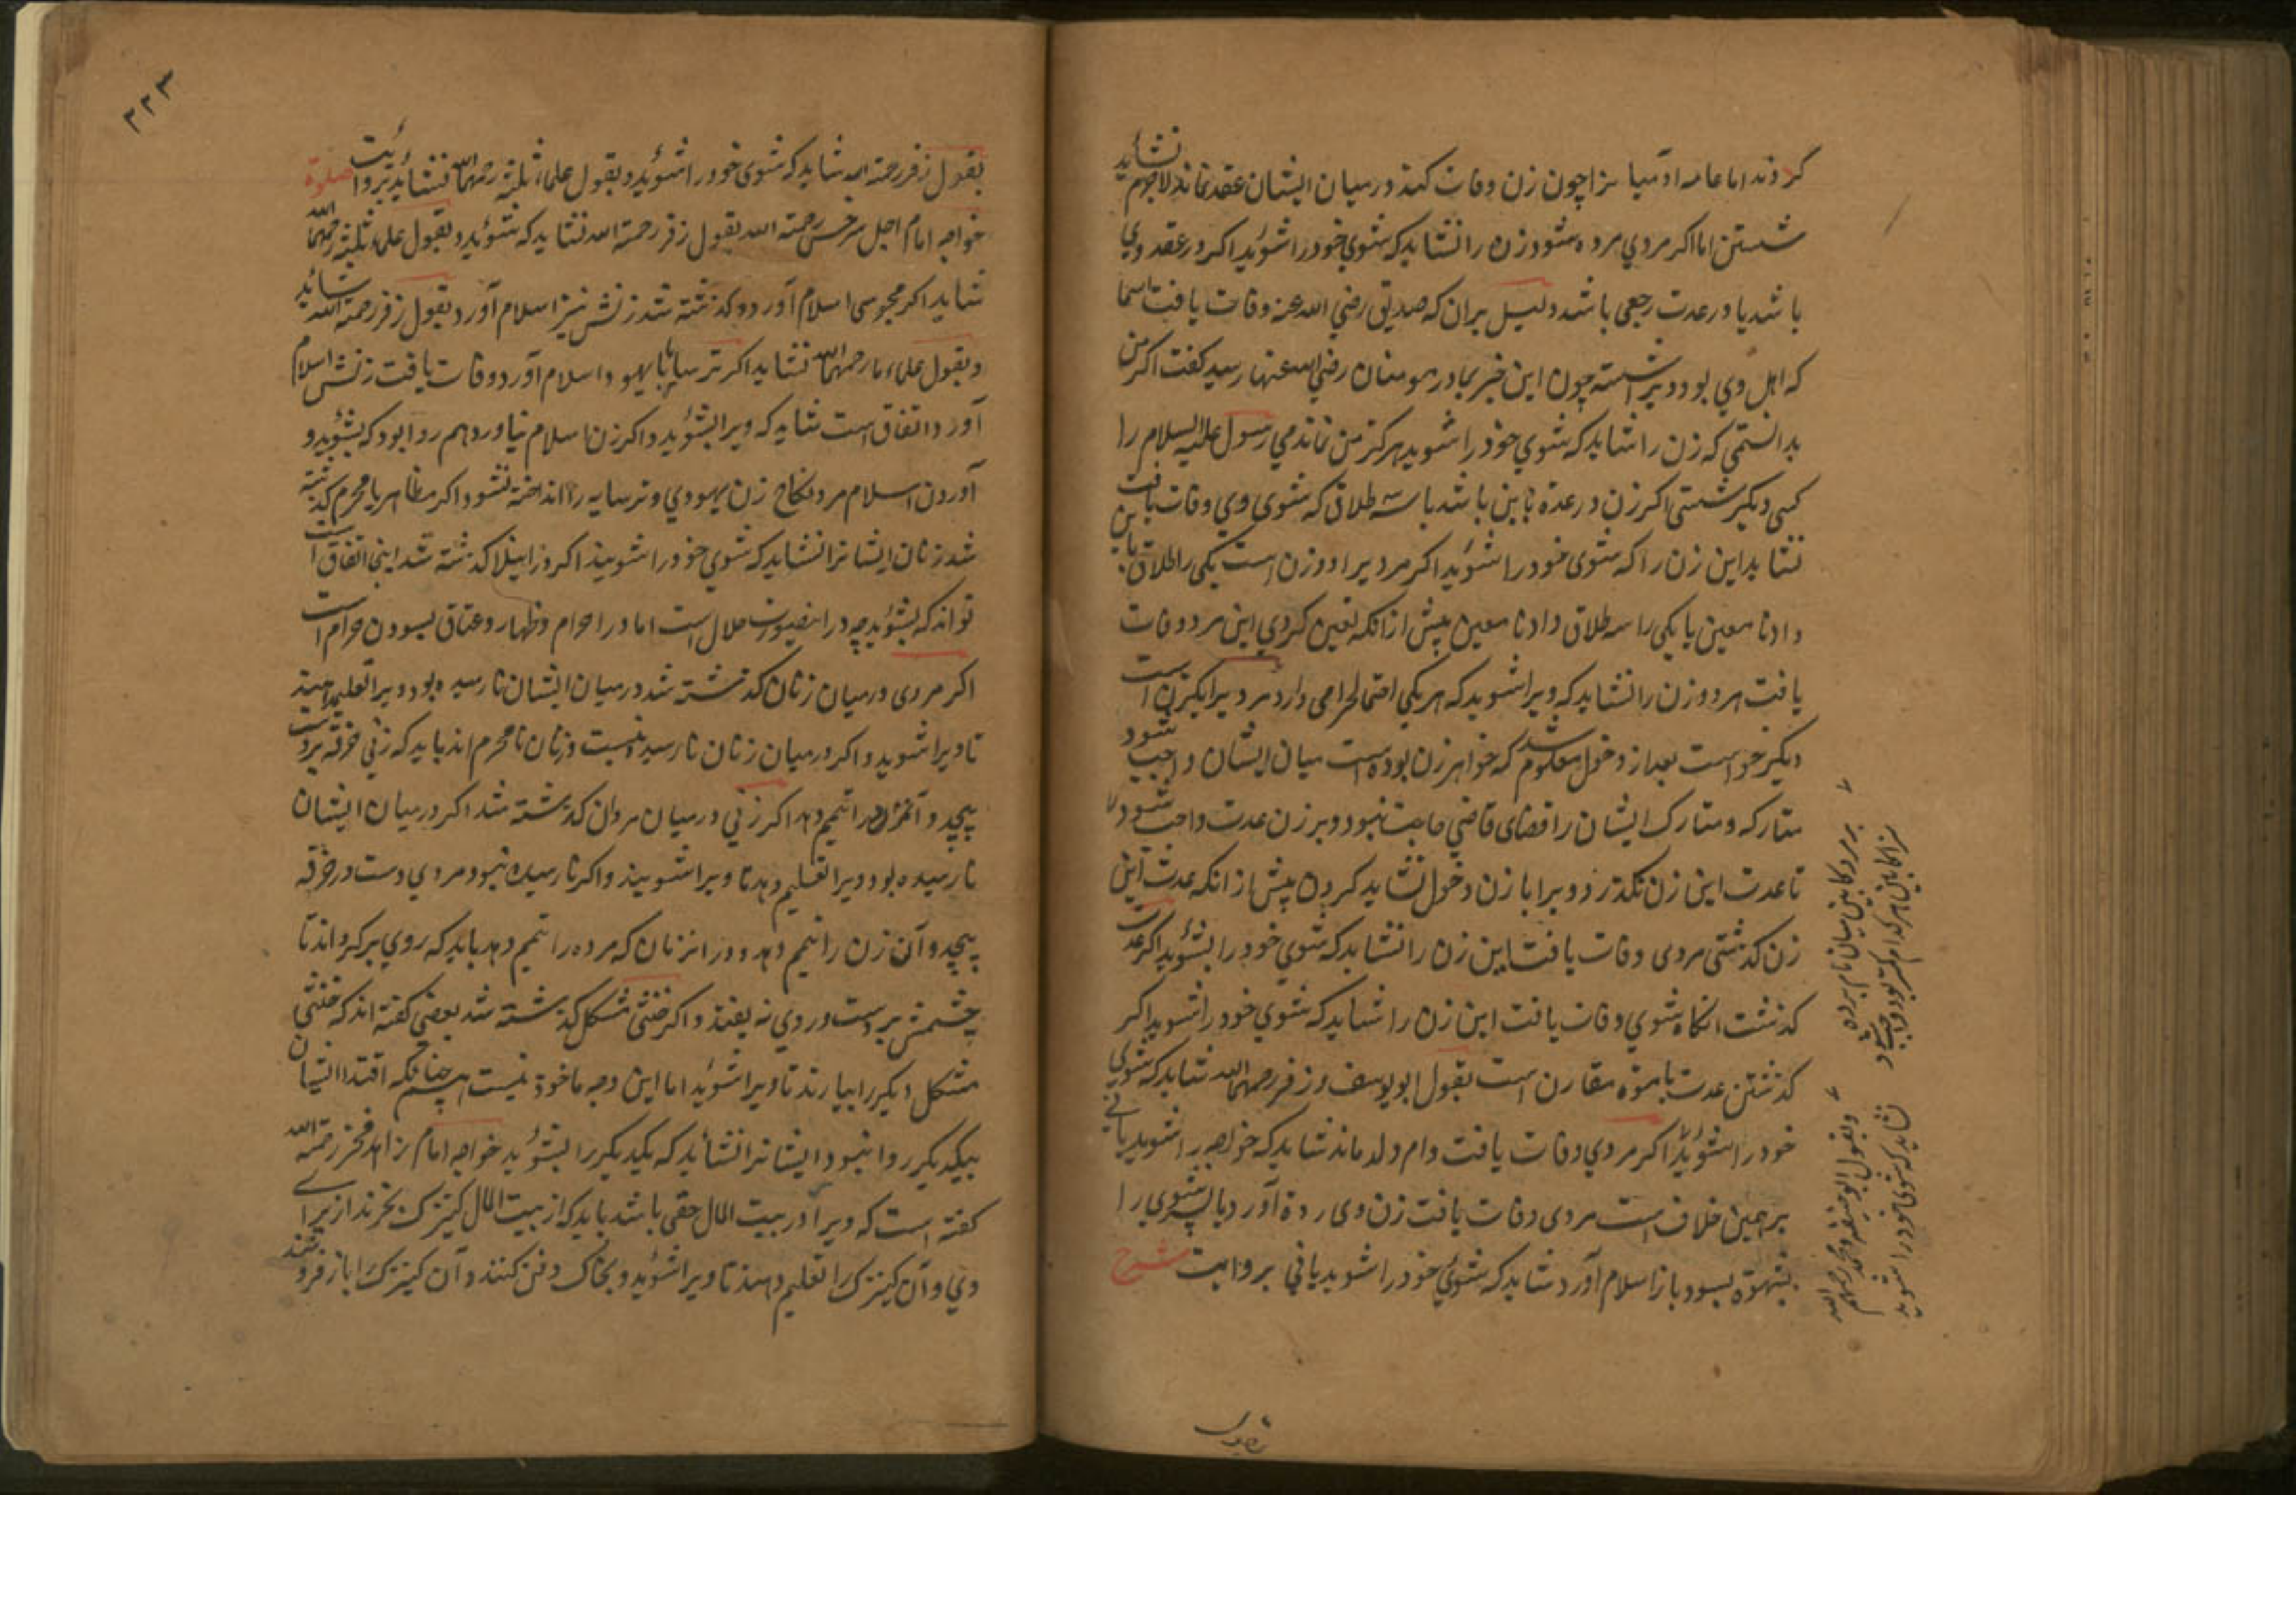 کردند اما عامه آدمیانرا چون زن وفات کند درمیان ایشان عقد نماند لاجرم نشاید
شستن اما اکر مردی مرده شود زن را نشاید که شوی خود را شوید اکر در عقد وی
باشد یا در عدت رجعی باشد دلیل بران که صدیق رضی الله عنه وفات یافت اسما
که اهل وی بود ویرا شسته چون این خبر بمادر مومنان رضی الله عنها رسید کفت اکر من
بدانستمی که زن را شاید که شوی خود را شوید هرکز من نماندمی رسول علیه السلام را
کسی دیکر شستی اکر زن در عدة باین باشد یا سه طلاق که شوی وی وفات یافت
نشاید این زن را که شوی خود را شوید اکر مردیرا دو زن است یکی را طلاق باین
داد نا معین یا یکی را سه طلاق داد نا معین پیش ازانکه تعین کردی این مرد وفات
یافت هر دو زن را نشاید که ویرا شوید که هر یکی احتمال حرامی دارد مردیرا یکزن است
دیکر خواست بعد از دخول معلوم شد که خواهر زن بوده است میان ایشان واجب شود
متارکه و متارک ایشان را قضای قاضی حاجت نبود و بر زن عدت واجب شود
تا عدت این زن نکذرد ویرا با زن دخول نشاید کردن پیش ازانکه عدت این
زن کذشتی مردی وفات یافت این زن را نشاید که شوی خود را بشوید اکر عدت
کذشت انکاه شوی وفات یافت این زن را شاید که شوی خود را شوید اکر
کذشتن عدت با موة مقارن است بقول ابو یوسف و زفر رحمهما الله شاید که شوی
خود را شوید اکر مردی وفات یافت و ام ولد ماند شاید که خواجه را شوید یا نی
بر همین خلاف است مردی وفات یافت زن وی ردة آورد یا پسر شوی را
بشهوة بسود باز اسلام آورد شاید که شوی خود را شوید یا نی بروایت شرح
و بقول ابو حنیفه و محمد رحمهم الله
نشاید که شوی خود را شوید
۲۲۳
بقول زفر رحمة الله شاید که شوی خود را شوید و بقول علماء ثلثه رحمهم الله نشاید بروایت صلوة
خواجه امام اجل سرخسی رحمة الله بقول زفر رحمة الله نشاید که شوید و بقول علماء ثلثه رحمهم الله
شاید اکر مجوسی اسلام آورد و کذشته شد زنش نیز اسلام آورد بقول زفر رحمة الله شاید
و بقول علماء ما رحمهم الله نشاید اکر ترسا یا یهود اسلام آورد وفات یافت زنش اسلام
آورد اتفاق است شاید که ویرا بشوید و اکر زن اسلام نیاورد هم روا بود که بشوید و
آوردن اسلام مرد نکاح زن یهودی و ترسایه را انداخته نشود اکر مظاهر یا محرم کذشته
شد زنان ایشانرا نشاید که شوی خود را شویند اکر وز ایلا کذشته شد اینجا اتفاق است
تواند که بشوید چه در اینصورت حلال است اما در احرام و ظهار و عتاق بسودن حرام است
اکر مردی درمیان زنان کذشته شد درمیان ایشان نارسیده بود ویرا تعلیم دهند
تا ویرا شوید و اکر درمیان زنان نارسیده نیست و زنان نامحرم اند باید که زنی خرقه بردست
پیچد و آنمرد را تیمم دهد اکر زنی درمیان مردان کذشته شد اکر درمیان ایشان
نارسیده بود ویرا تعلیم دهد تا ویرا شویند و اکر نارسیده نبود مردی دست در خرقه
پیچد و آن زن را تیمم دهد و در انزمان که مرده را تیمم دهد باید که روی برکرداند تا
چشمش بر دست و روی نه یفتد و اکر خنثی مشکل کذشته شد بعضی کفته اند که خنثی
مشکل دیکر را بیارند تا ویرا شوید اما این وجه ماخوذ نیست همچنانکه اقتدا ایشان
بیکدیکر روا نبود ایشانرا نشاید که یکدیکر را بشوید خواجه امام زاهد فخر رحمة الله
کفته است که ویرا در بیت المال حقی باشد باید که از بیت المال کنیزک بخرند از برای
وی و آن کنیزک را تعلیم دهند تا ویرا شوید و بخاک دفن کنند و آن کنیزک را باز فروشند